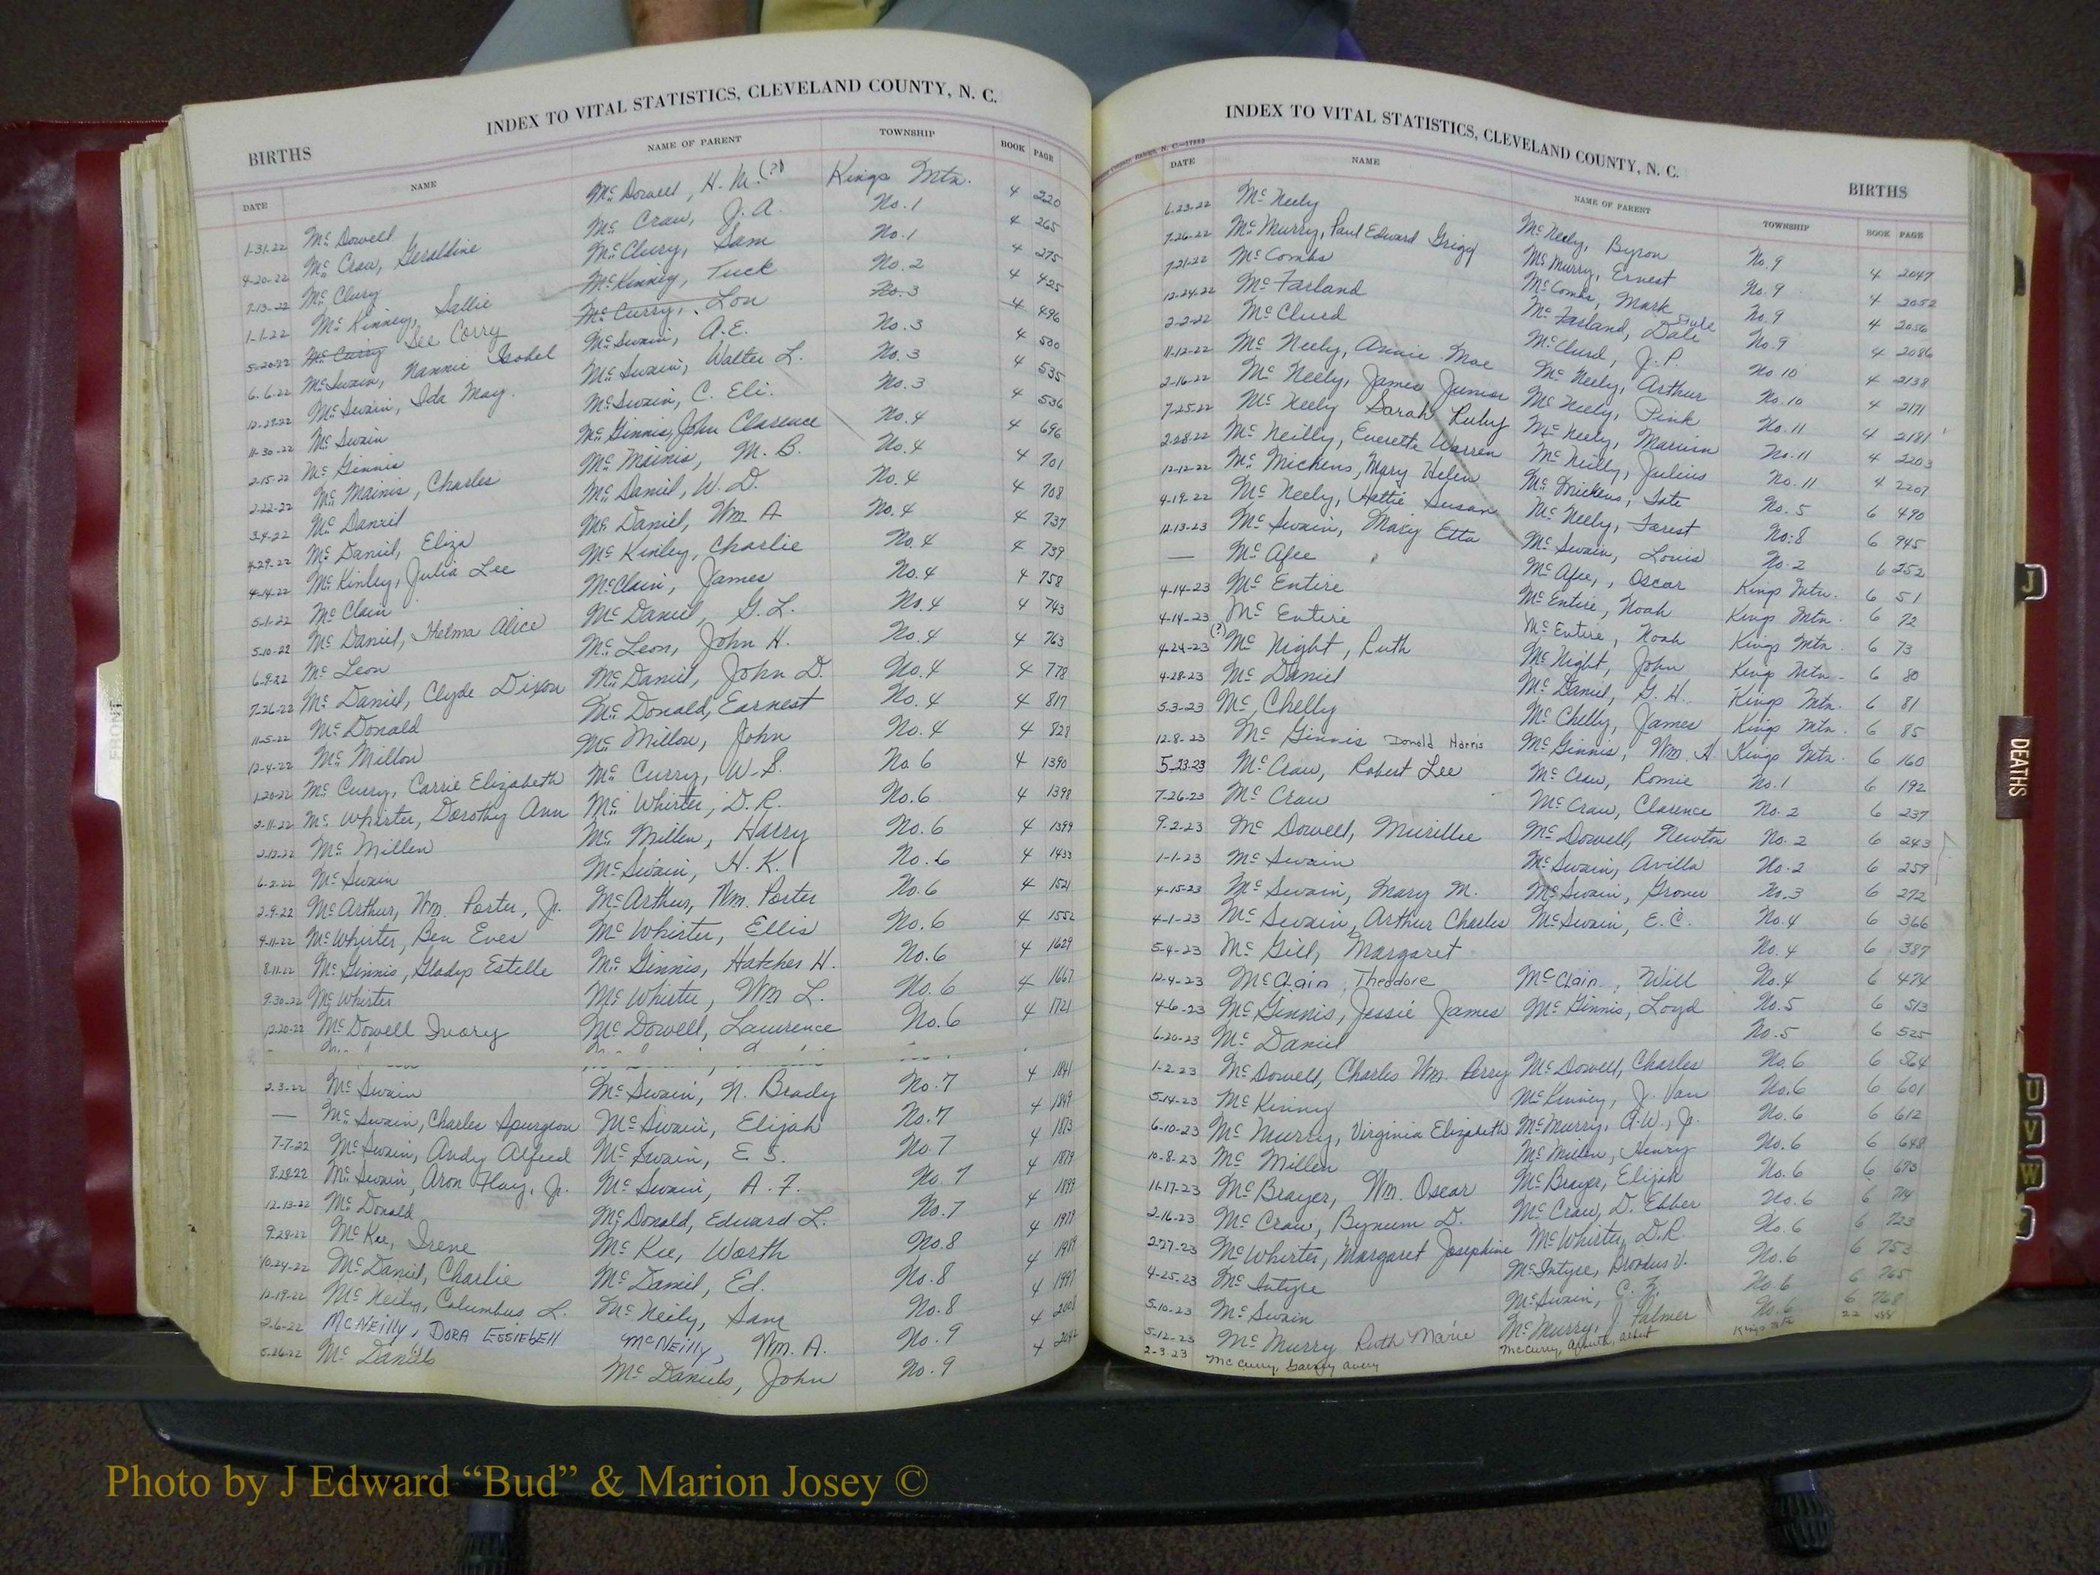 INDEX TO VITAL STATISTICS, CLEVELAND COUNTY, N. C.
BIRTHS
DATE NAME NAME OF PARENT TOWNSHIP BOOK PAGE
1-31-22 McDowell McDowell, H. M.(?) Kings Mtn. 4 220
4-20-22 McCraw, Geraldine McCraw, J. A. No. 1 4 265
7-13-22 McClury McClury, Sam No. 1 4 275
1-1-22 McKinney, Sallie McKinney, Tuck No. 2 4 425
5-20-22 McCurry See Corry McCurry, Lon No. 3 4 496
6-6-22 McSwain, Nannie Isobel McSwain, A. E. No. 3 4 500
12-29-22 McSwain, Ida May. McSwain, Walter L. No. 3 4 535
11-30-22 McSwain McSwain, C. Eli. No. 3 4 536
2-15-22 McGinnis McGinnis, John Clarence No. 4 4 696
2-22-22 McMainis, Charles McMainis, M. B. No. 4 4 701
3-4-22 McDaniel McDaniel, W. D. No. 4 4 708
4-29-22 McDaniel, Eliza McDaniel, Wm A No. 4 4 737
4-14-22 McKinley, Julia Lee McKinley, Charlie No. 4 4 739
5-1-22 McClain McClain, James No. 4 4 758
5-10-22 McDaniel, Thelma Alice McDaniel, G. L. No. 4 4 743
6-9-22 McLeon McLeon, John H. No. 4 4 763
7-26-22 McDaniel, Clyde Dixon McDaniel, John D. No. 4 4 778
11-5-22 McDonald McDonald, Earnest No. 4 4 817
12-4-22 McMillon McMillon, John No. 4 4 828
1-20-22 McCurry, Carrie Elizabeth McCurry, W. S. No. 6 4 1390
2-11-22 McWhirter, Dorothy Ann McWhirter, D. R. No. 6 4 1398
2-12-22 McMillen McMillen, Harry No. 6 4 1399
6-2-22 McSwain McSwain, H. K. No. 6 4 1433
2-9-22 McArthur, Wm. Porter, Jr. McArthur, Wm. Porter No. 6 4 1521
4-11-22 McWhirter, Ben Eves McWhirter, Ellis No. 6 4 1552
8-11-22 McGinnis, Gladys Estelle McGinnis, Hatcher H. No. 6 4 1629
9-30-22 McWhirter McWhirter, Wm L. No. 6 4 1667
12-20-22 McDowell Ivory McDowell, Lawrence No. 6 4 1721
2-3-22 McSwain McSwain, N. Brady No. 7 4 1841
— McSwain, Charles Spurgeon McSwain, Elijah No. 7 4 1849
7-7-22 McSwain, Andy Alfred McSwain, E S. No. 7 4 1873
8-28-22 McSwain, Aron Flay, Jr. McSwain, A. F. No. 7 4 1879
12-13-22 McDonald McDonald, Edward L. No. 7 4 1899
9-28-22 McKee, Irene McKee, Worth No. 8 4 1979
10-24-22 McDaniel, Charlie McDaniel, Ed. No. 8 4 1989
12-19-22 McNeily, Columbus L. McNeily, Sam No. 8 4 1997
2-6-22 McNEilly, DORA ESSIEBEll McNEilly, Wm. A. No. 9 4 2008
5-26-22 McDaniels McDaniels, John No. 9 4 2042
INDEX TO VITAL STATISTICS, CLEVELAND COUNTY, N. C.
BIRTHS
DATE NAME NAME OF PARENT TOWNSHIP BOOK PAGE
6-23-22 McNeely McNeely, Byron No. 9 4 2047
7-26-22 McMurry, Paul Edward Grigg McMurry, Ernest No. 9 4 2052
7-21-22 McCombs McCombs, Mark No. 9 4 2056
12-24-22 McFarland McFarland, Dale No. 9 4 2086
2-2-22 McClurd McClurd, J. P. No. 10 4 2138
11-12-22 McNeely, Annie Mae McNeely, Arthur No. 10 4 2171
2-16-22 McNeely, James Junior McNeely, Pink No. 11 4 2181
7-25-22 McNeely Sarah Ruby McNeely, Marion No. 11 4 2203
2-28-22 McNeilly, Everette Warren McNeilly, Julius No. 11 4 2207
12-12-22 McMickens, Mary Helen McMickens, Tate No. 5 6 490
4-19-22 McNeely, Hattie Susan McNeely, Forest No. 8 6 945
12-13-23 McSwain, Macy Etta McSwain, Louis No. 2 6 252
— McAfee McAfee, Oscar Kings Mtn. 6 51
4-14-23 McEntire McEntire, Noah Kings Mtn. 6 72
4-14-23 McEntire McEntire, Noah Kings Mtn. 6 73
4-24-23 (?) McNight, Ruth McNight, John Kings Mtn. 6 80
4-28-23 McDaniel McDaniel, G. H. Kings Mtn. 6 81
5-3-23 McChelly McChelly, James Kings Mtn. 6 85
12-8-23 McGinnis Donald Harris McGinnis, Wm. A Kings Mtn. 6 160
5-23-23 McCraw, Robert Lee McCraw, Romie No. 1 6 192
7-26-23 McCraw McCraw, Clarence No. 2 6 237
9-2-23 McDowell, Murillee McDowell, Newton No. 2 6 243
1-1-23 McSwain McSwain, Avilla No. 2 6 259
4-15-23 McSwain, Mary N. McSwain, Grover No. 3 6 272
4-1-23 McSwain, Arthur Charles McSwain, E. C. No. 4 6 366
5-4-23 McGill, Margaret No. 4 6 387
12-4-23 McClain, Theodore McClain, Will No. 4 6 474
4-6-23 McGinnis, Jessie James McGinnis, Loyd No. 5 6 513
6-20-23 McDaniel No. 5 6 525
1-2-23 McDowell, Charles Wm. Perry McDowell, Charles No. 6 6 564
5-14-23 McKinny McKinney, J. Van No. 6 6 601
6-10-23 McMurry, Virginia Elizabeth McMurry, A. W., Jr. No. 6 6 612
10-8-23 McMillen McMillen, Henry No. 6 6 648
11-17-23 McBrayer, Wm. Oscar McBrayer, Elijah No. 6 6 673
2-16-23 McCraw, Bynum D. McCraw, D. Ebber No. 6 6 714
2-27-23 McWhirter, Margaret Josephine McWhirter, D. R. No. 6 6 723
4-25-23 McIntyre McIntyre, Broadus V. No. 6 6 753
5-10-23 McSwain McSwain, C. Z. No. 6 6 765
5-12-23 McMurry Ruth Marie McMurry, J. Palmer No. 6 6 768
2-3-23 McCurry, Garvey Avery McCurry, Albert Kings Mtn 22
FRONT
J
DEATHS
U
V
W
Photo by J Edward “Bud” & Marion Josey ©